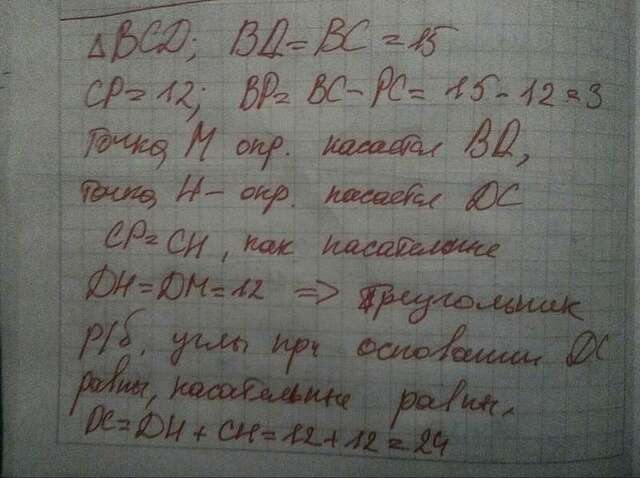 △BCD; BD = BC = 15
CP = 12; BP = BC - PC = 15 - 12 = 3
Точка M окр. касается BD,
точка H - окр. касается DC
CP = CH, как касательные
DH = DM = 12 => треугольник
р/б, углы при основании DC
равны, касательные равны.
DC = DH + CH = 12 + 12 = 24